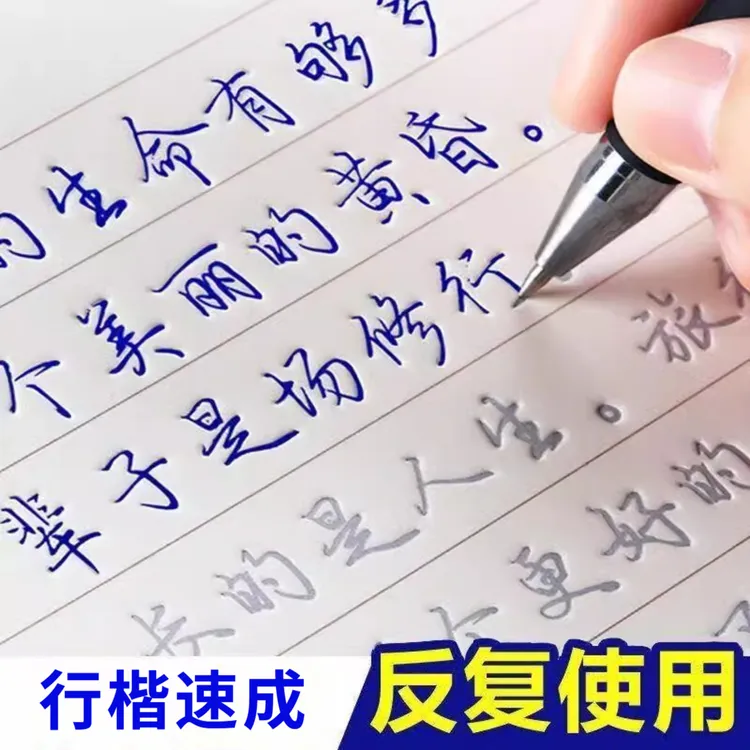 的生命有够多
个美丽的黄昏。
辈子是场修行
长的是人生。旅
个更好的
行楷速成
反复使用